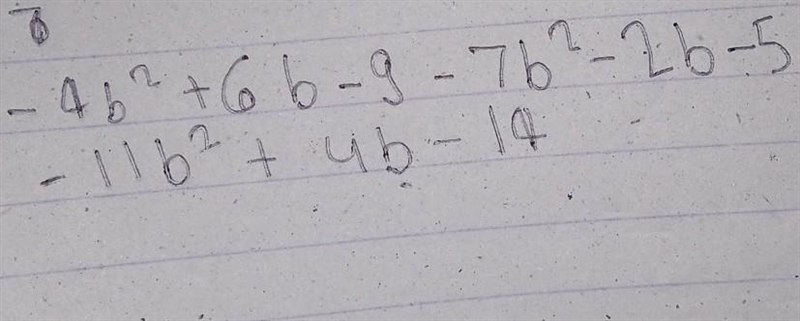 -4b² + 6b - 9 - 7b² - 2b - 5
-11b² + 4b - 14